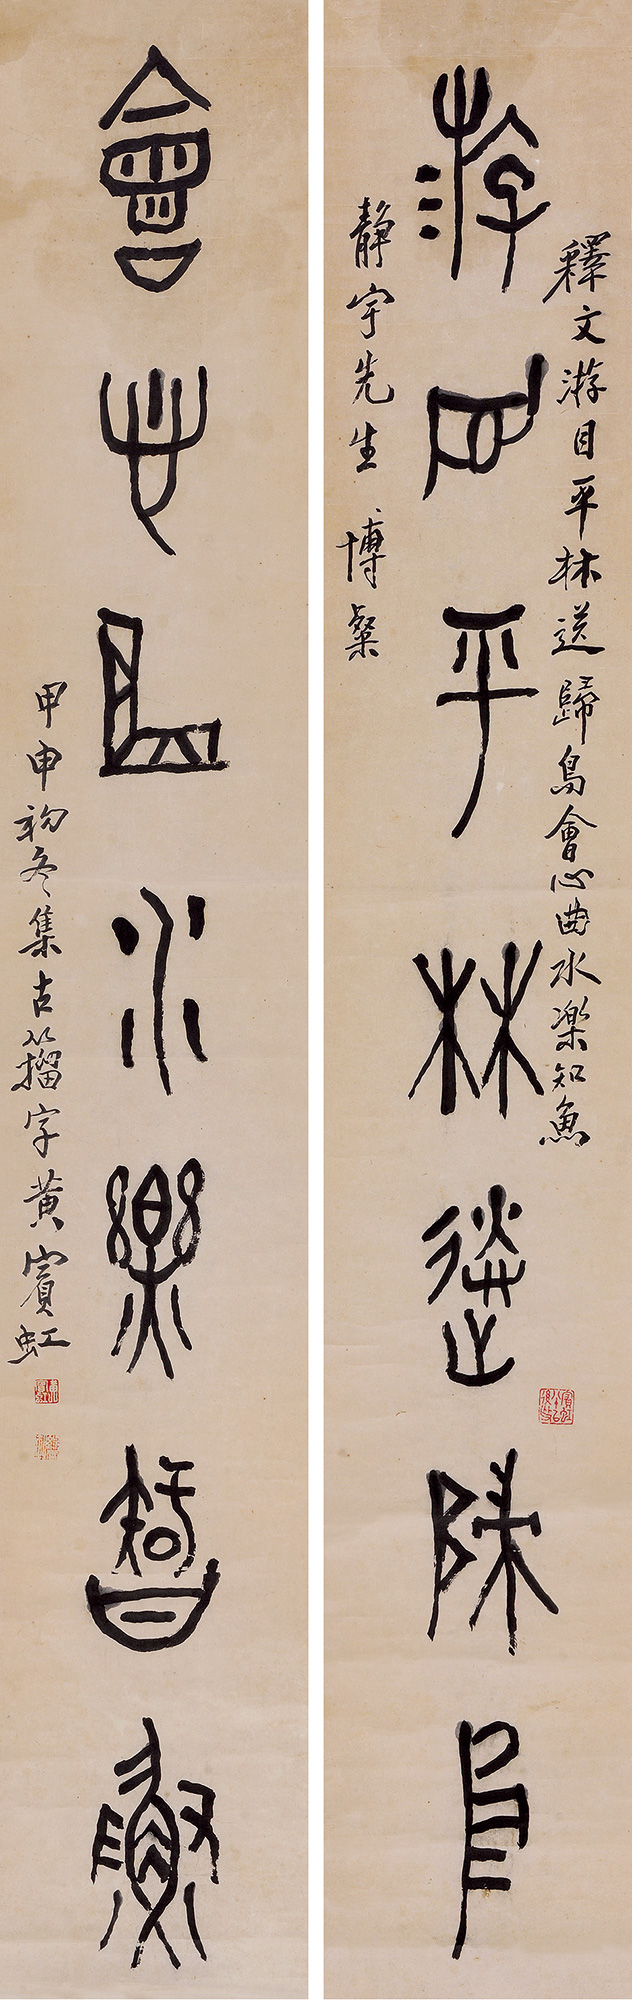 游目平林送歸鳥
釋文游目平林送歸鳥會心曲水樂知魚
靜宇先生 博粲
會心曲水樂知魚
甲申初冬集古籀字黃賓虹